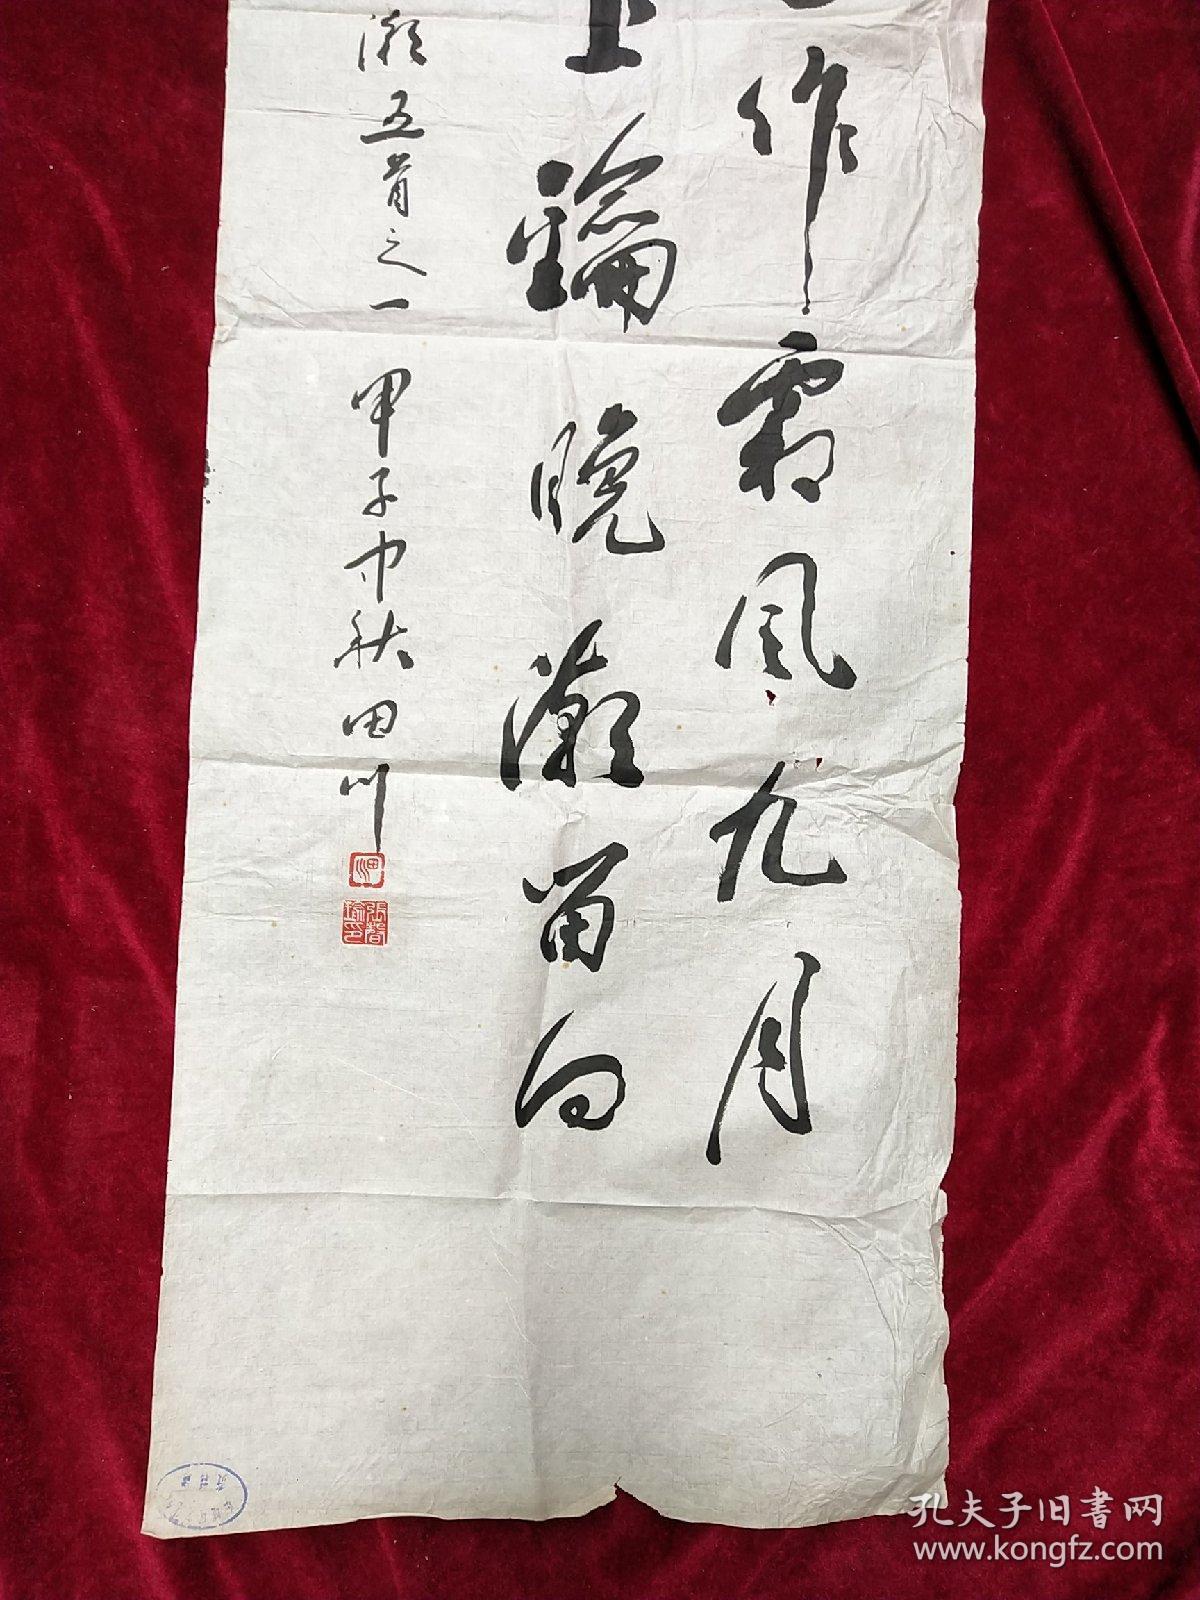 作霜風九月
上鑰晚潮留向
潮五首之一 甲子中秋 田川
孔夫子旧书网
www.kongfz.com